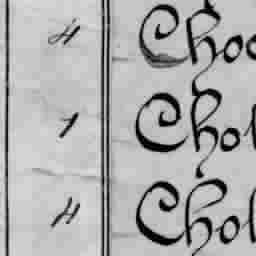 4 Choo
1 Chol
4 Chol